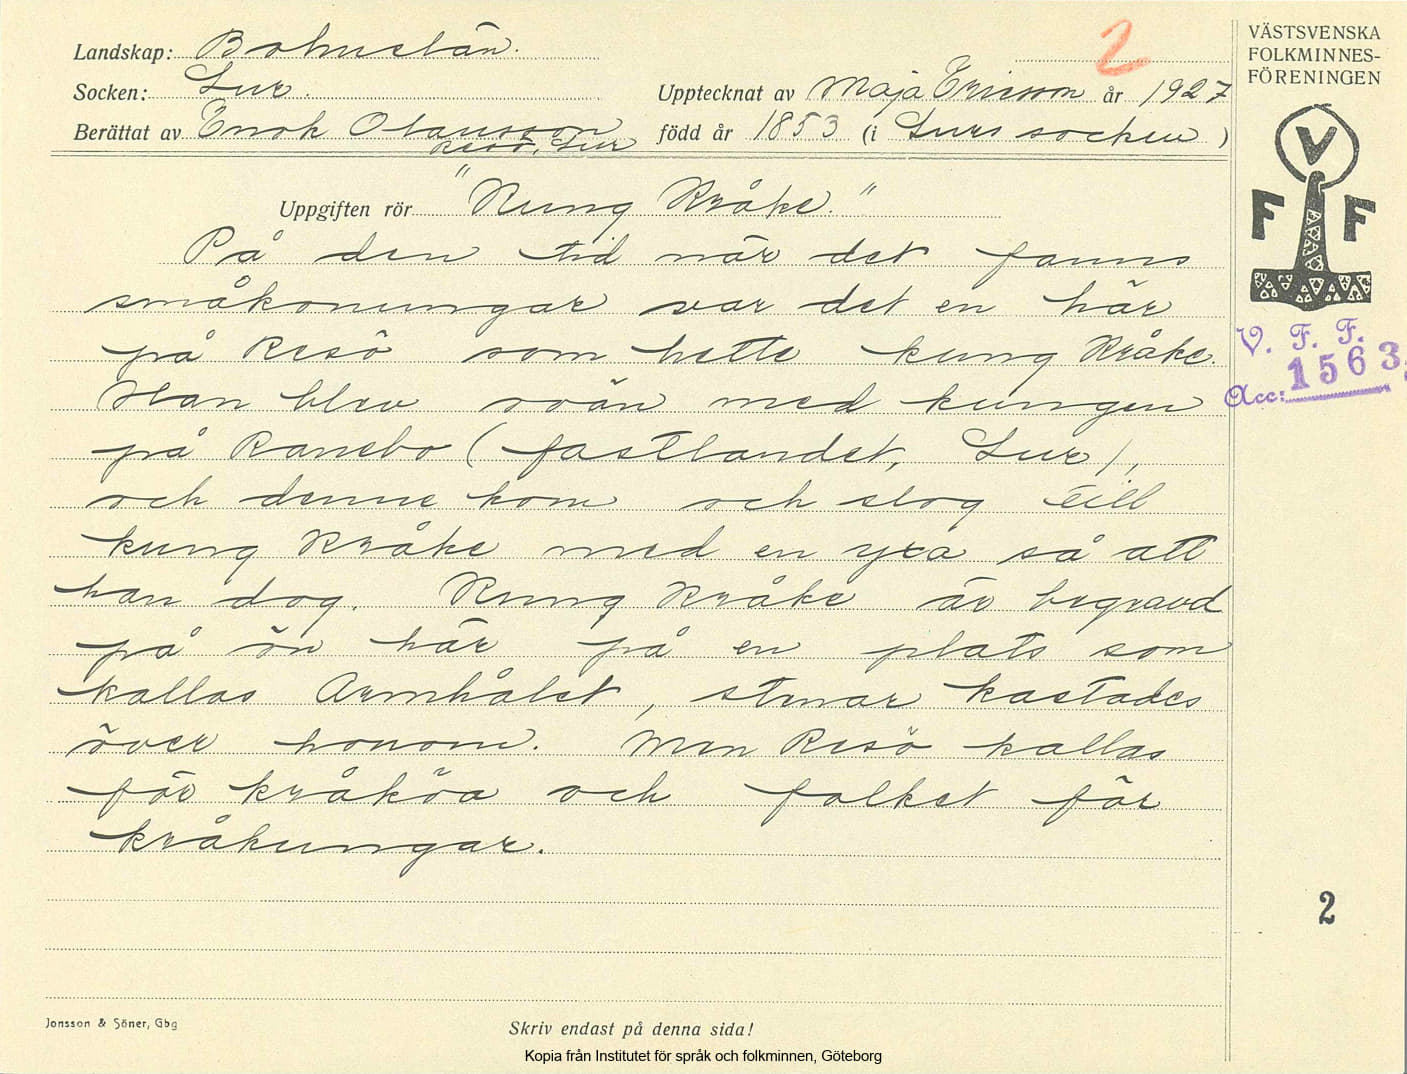 Landskap: Bohuslän.
2
Socken: Lur.
Upptecknat av Maja Ericsson år 1927
Berättat av Enok Olausson
Resö, Lur
född år 1853 (i Lurs socken)
Uppgiften rör "Kung Kråke."
På den tid när det fanns
småkonungar var det en här
på Resö som hette kung Kråke.
Han blev ovän med kungen
på Ranebo (fastlandet, Lur),
och denne kom och slog till
kung Kråke med en yxa så att
han dog. Kung Kråke är begravd
på ön här på en plats som
kallas Armhålet, stenar kastades
över honom. Men Resö kallas
för kråköa och folket för
kråkungar.
Jonsson & Söner, Gbg
Skriv endast på denna sida!
Kopia från Institutet för språk och folkminnen, Göteborg
VÄSTSVENSKA
FOLKMINNES-
FÖRENINGEN
V
F F
V. F. F.
Acc: 1563
2